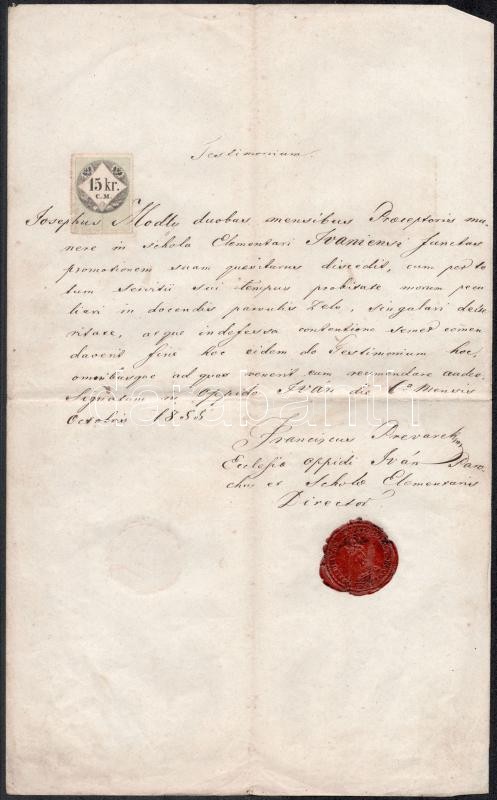 Testimonium.
15 kr.
C.M.
Josephus Modly duobus mensibus Praeceptoris mu-
nere in schola Elementari Ivaniensi functus
promotionem suam quaesiturus discedit, cum per to
tum servitii sui tempus probitate morum pecu
liari in docendis parvulis Zelo, singulari dexte
ritate, atque indefessa contentione semet comen
daverit fine hoc eidem do Testimonium hoc,
omnibusque ad quos venerit eum recomendare audeo
Signatum in Oppido Iván die 6a Mensis
Octobris 1855
Franciscus Prevarek
Ecclesia oppidi Iván Paro
chus et Schola Elementaris
Director
darabanth